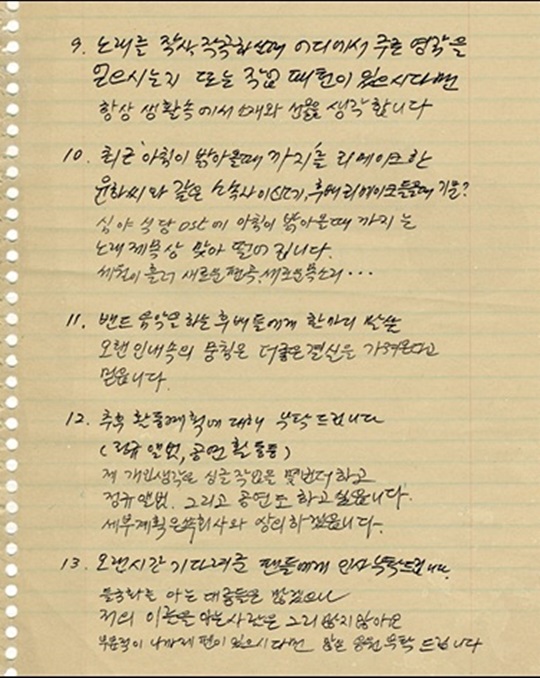 9. 노래를 작사, 작곡하실때 어디에서 주로 영감을
얻으시는지 또는 작업 패턴이 있으시다면
항상 생활속에서 소재와 선율을 생각합니다
10. 최근 '아침이 밝아올때 까지'를 리메이크한
윤하씨와 같은 소속사이신데, 후배 리메이크 들을때 기분?
심야식당 ost에 아침이 밝아올때 까지는
노래 제목상 맞아 떨어집니다.
세월이 흘러 새로운편곡, 새로운목소리...
11. 밴드 음악을 하는 후배들에게 한마디 말씀
오랜 인내속의 뭉침은 더 좋은 결실을 가져온다고
믿습니다.
12. 추후 활동계획에 대해 부탁드립니다
(정규앨범, 공연 활동 등)
제 개인생각은 싱글작업을 몇번더 하고
정규앨범. 그리고 공연도 하고 싶습니다.
세부계획은 회사와 상의하겠습니다.
13. 오랜시간 기다려준 팬들에게 인사 부탁드립니다.
아는 대중들은 많겠으나
저의 이름을 아는사람은 그리 많지 않아요
팬이 있으시다면 많은 응원 부탁 드립니다